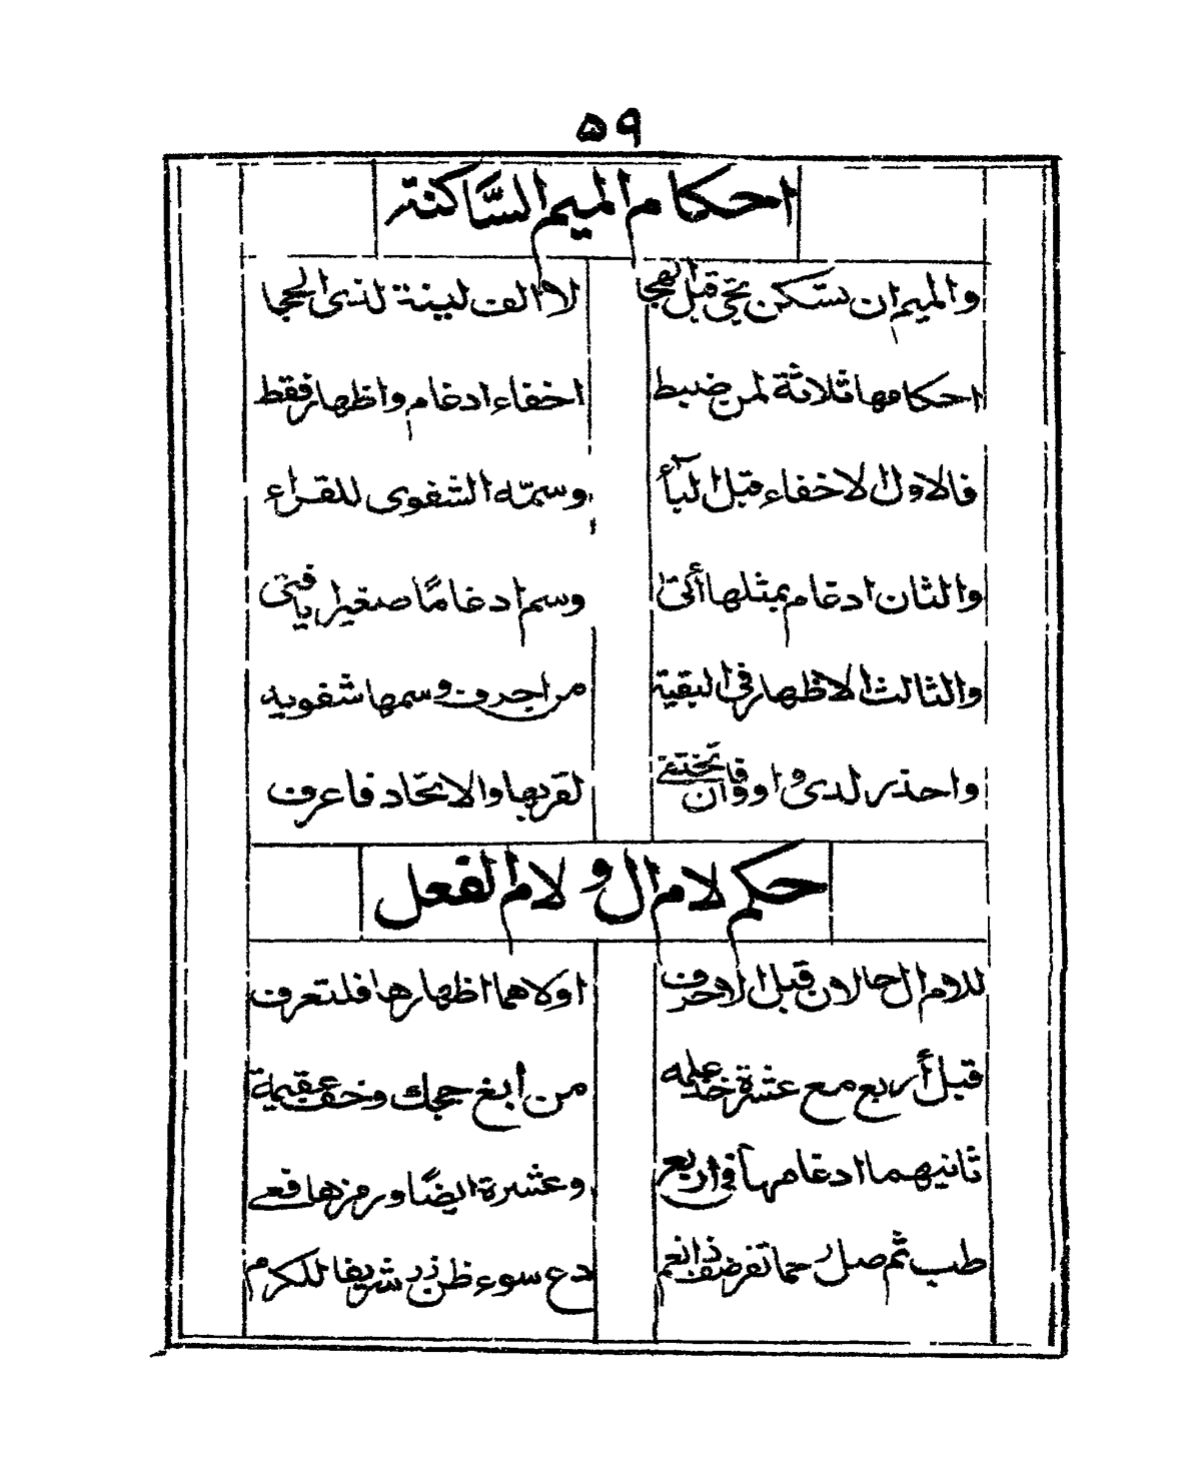 ٥٩
احكام الميم السّاكنة
والميم ان تسكن تجي قبل الهجا لا الف لينة لذى الحجا
احكامها ثلاثة لمن ضبط اخفاء ادغام واظهار فقط
فالاول الاخفاء قبل الباء وسمّه الشفوى للقراء
والثان ادغام بمثلها أتى وسم ادغامًا صغيرا يافتى
والثالث الاظهار فى البقية من احرف وسمها شفويه
واحذر لدى واو وفا ان تختفى لقربها والاتحاد فاعرف
حكم لام ال ولام الفعل
للام ال حالان قبل الاحرف اولاهما اظهارها فلتعرف
قبل أربع مع عشرة خذ علمه من أبغ حجك وخف عقيمة
ثانيهما ادغامها فى اربع وعشرة ايضًا ورمزها فعى
طب ثم صل رحما تفز ضف ذا نعم دع سوء ظن زر شريفا للكرم